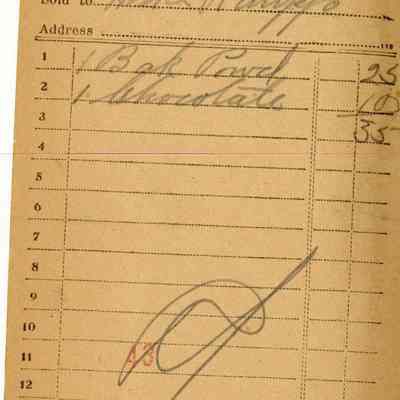 Sold to
Address
1 1 Bak Powd 25
2 1 Chocolate 10
3 35
4
5
6
7
8
9
10
11 43
12